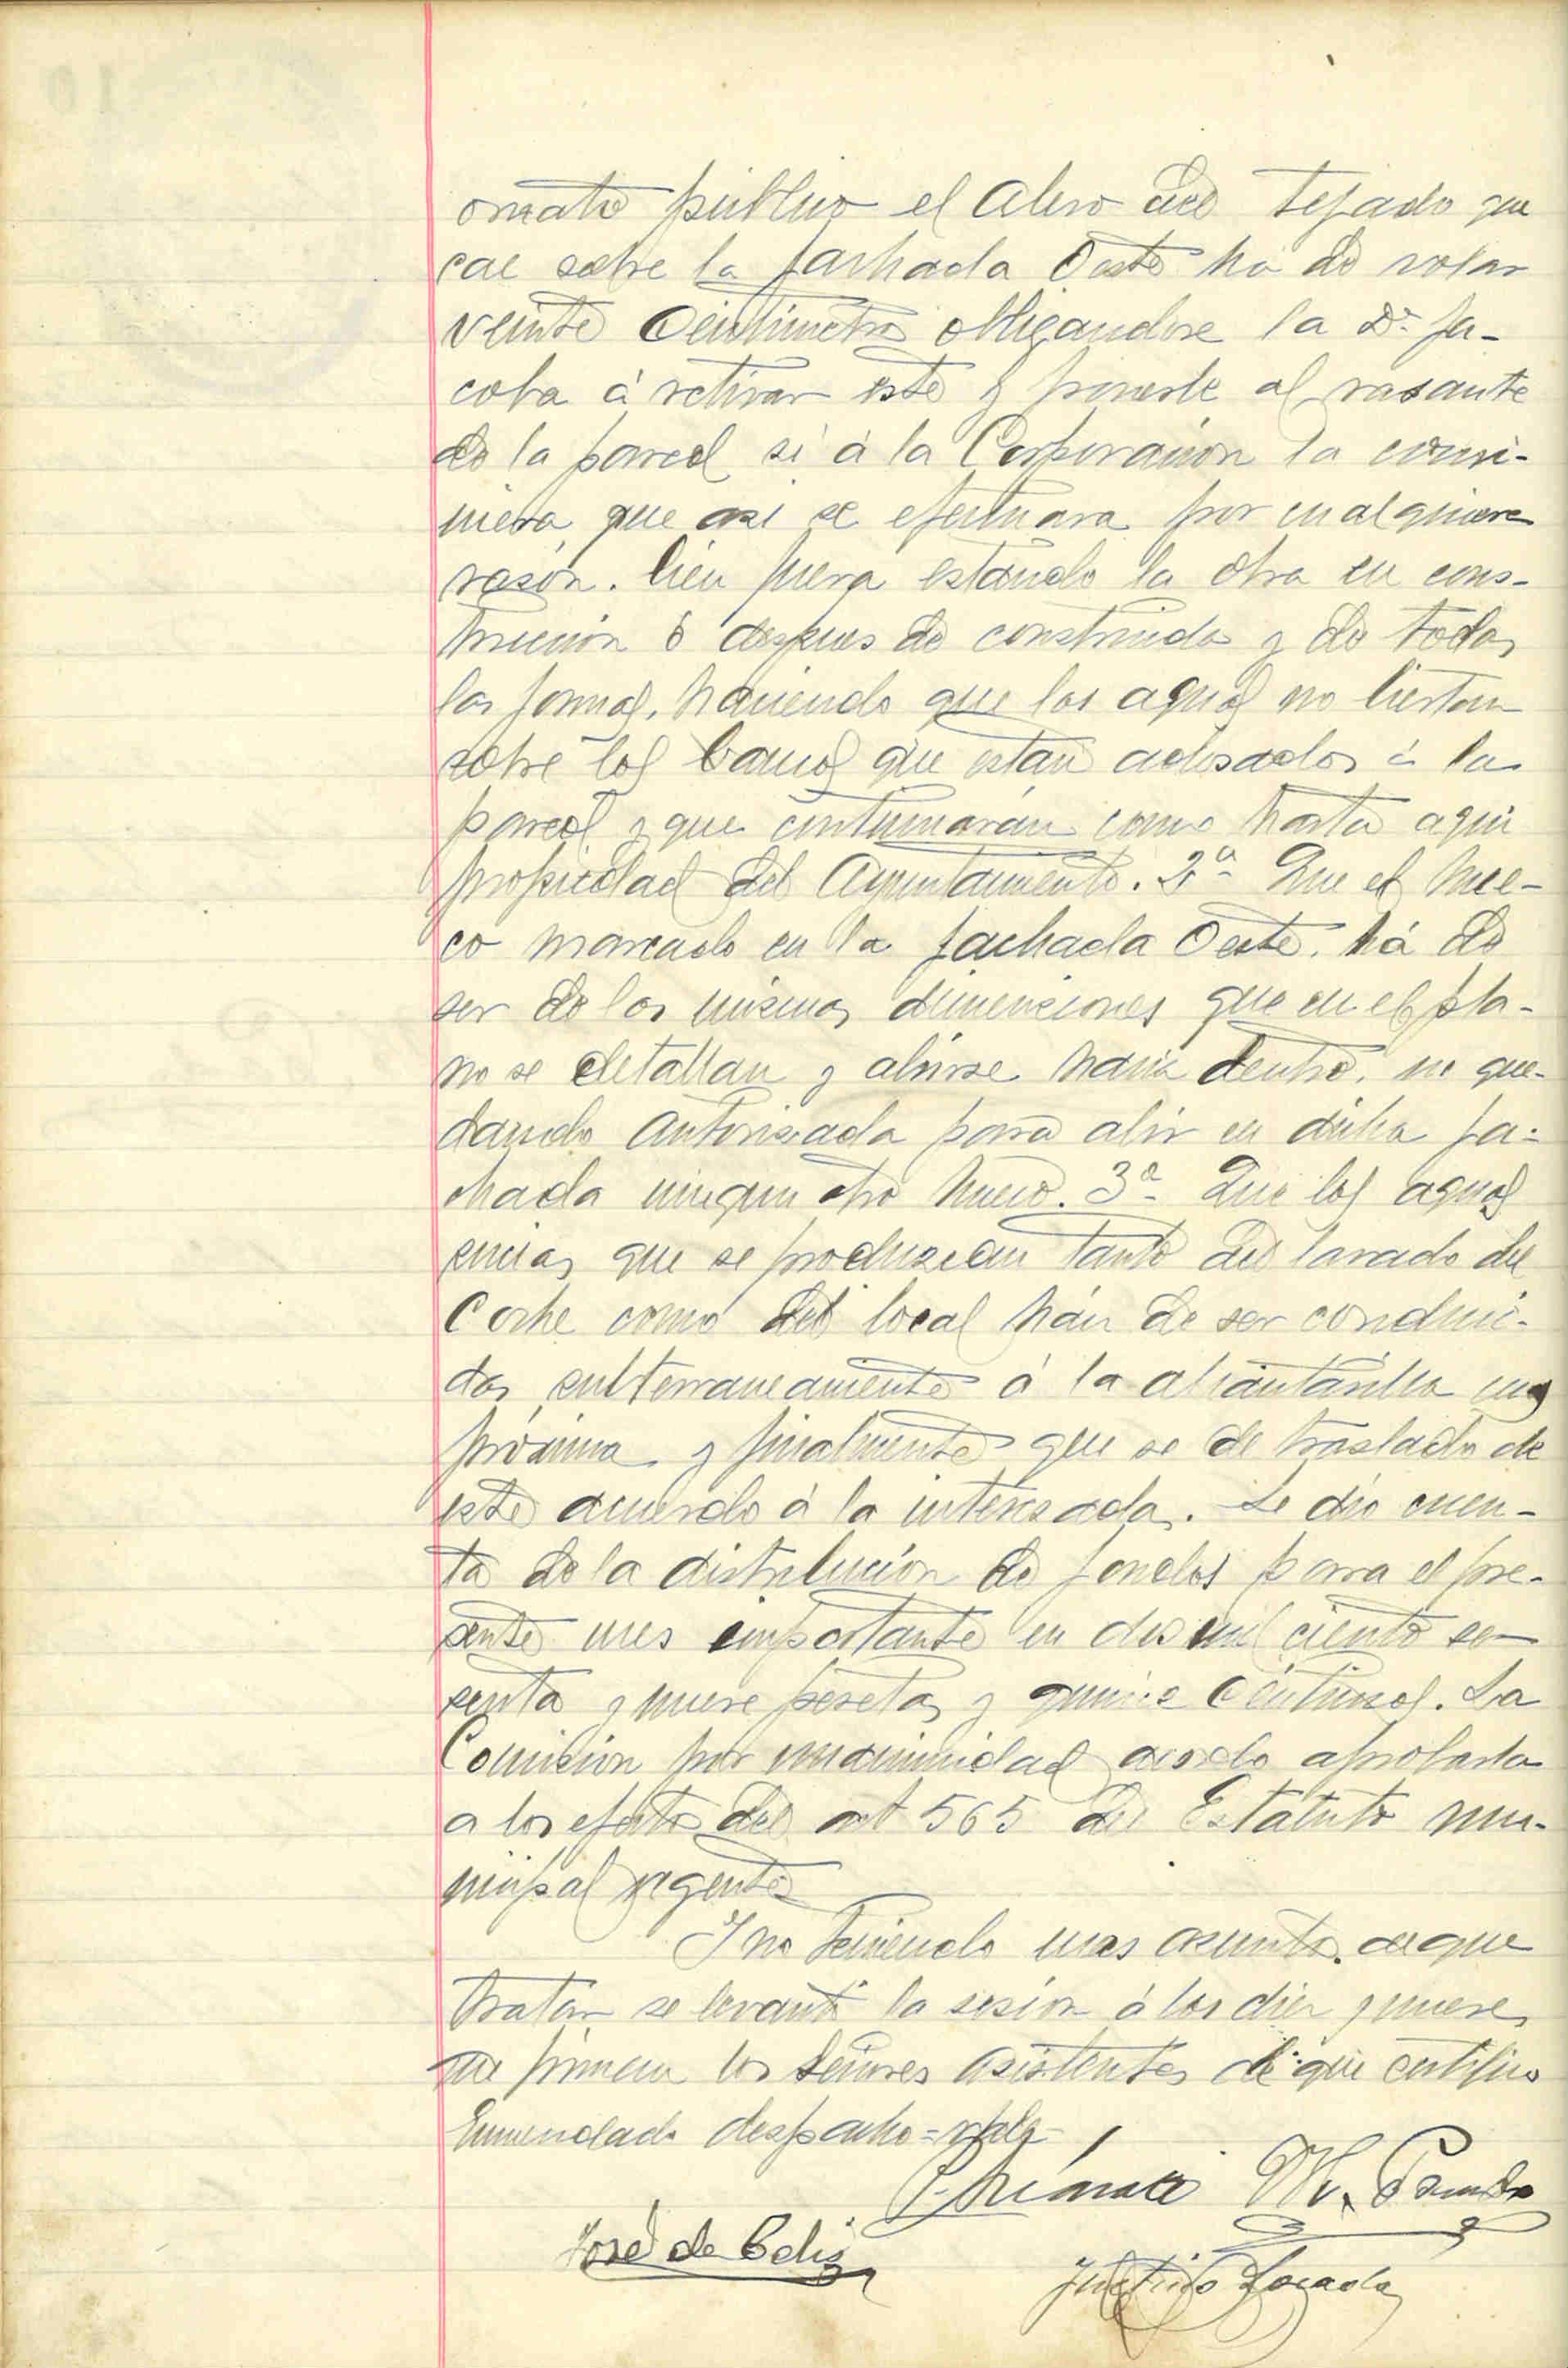 ornato público el alero del tejado que
cae sobre la fachada Oeste ha de volar
veinte centimetros obligandose la Dª Ja-
coba á retirar este y ponerle al rasante
de la pared si á la Corporación la convi-
niera, que asi se efectuara por cualquiera
razón. bien fuera estando la obra en cons-
trucción ó despues de construida y de todas
las formas, haciendo que las aguas no viertan
sobre los bancos que estan adosados á la
pared y que continuarán como hasta aqui
propiedad del Ayuntamiento. 2ª Que el hue-
co marcado en la fachada Oeste, há de
ser de las mismas dimensiones que en el pla-
no se detallan y abrirse hacia dentro, no que-
dando autorizada para abrir en dicha fa-
chada ningun otro hueco. 3ª Que las aguas
sucias que se produzcan tanto del lavado del
Coche como del local hán de ser conduci-
das subterraneamente á la alcantarilla mas
próxima y finalmente que se de traslado de
este acuerdo á la interesada. Se dió cuen-
ta de la distribución de fondos para el pre-
sente mes importante en dos mil ciento se-
senta y nueve pesetas y quince centimos. La
Comisión por unanimidad acordo aprobarla
a los efectos del art 565 del Estatuto mu-
nicipal vigente
Y no teniendo mas asuntos de que
tratar se levantó la sesión á las diez y nueve,
que firman los Señores asistentes de que certifico
Enmendado despacho = vale
M.
José de Celis
Justino Lozada